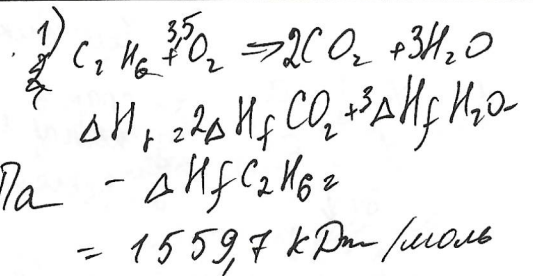 1)
C₂H₆ + 3,5 O₂ => 2CO₂ + 3H₂O
ΔHr = 2ΔHf CO₂ + 3ΔHf H₂O -
Па - ΔHf C₂H₆ =
= 1559,7 кДж/моль